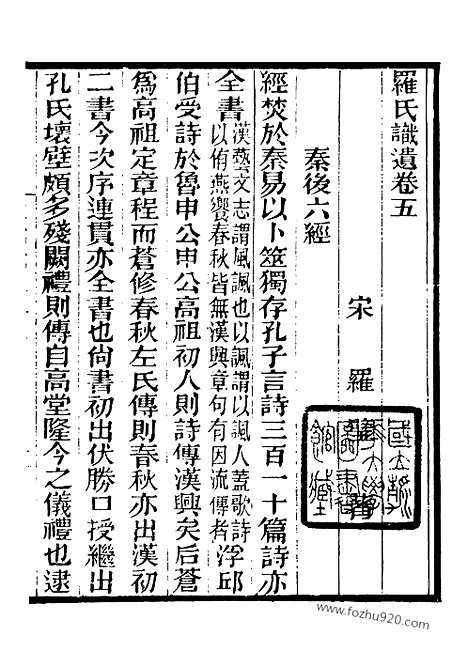 羅氏識遺卷五
宋 羅
秦後六經
經焚於秦易以卜筮獨存孔子言詩三百一十篇詩亦
全書漢藝文志謂風諷也以諷謂以諷人蓋歌詩以侑燕饗春秋皆無漢興章句有因流傳者浮邱
伯受詩於魯申公申公高祖初人則詩傳漢興矣后蒼
爲高祖定章程而蒼修春秋左氏傳則春秋亦出漢初
二書今次序連貫亦全書也尚書初出伏勝口授繼出
孔氏壞壁頗多殘闕禮則傳自高堂隆今之儀禮也逮
www.fozhu920.com